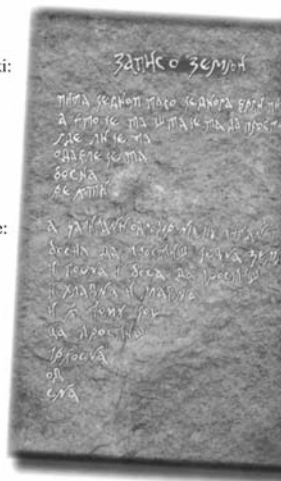 ki:
ЗАПИС О ЗЕМЉИ
ПИТА ЈЕДНОМ ТАКО ЈЕДНОГА ВРЛИ
А КТО ЈЕ ТА ШТА ЈЕ ТА ДА
ГДЕ ЛИ ЈЕ ТА
ОДАКЛЕ ЈЕ ТА
БОСНА
РЕКТИ
e:
А ЗАПИТАНИ
БОСНА ДА ПРОСТИШ ЈЕДНА
И ПОСНА И БОСА ДА ПРОСТИШ
И ХЛАДНА И ГЛАДНА
И К ТОМУ ЈОШ
ДА ПРОСТИШ
ПРКОСНА
ОД
СНА